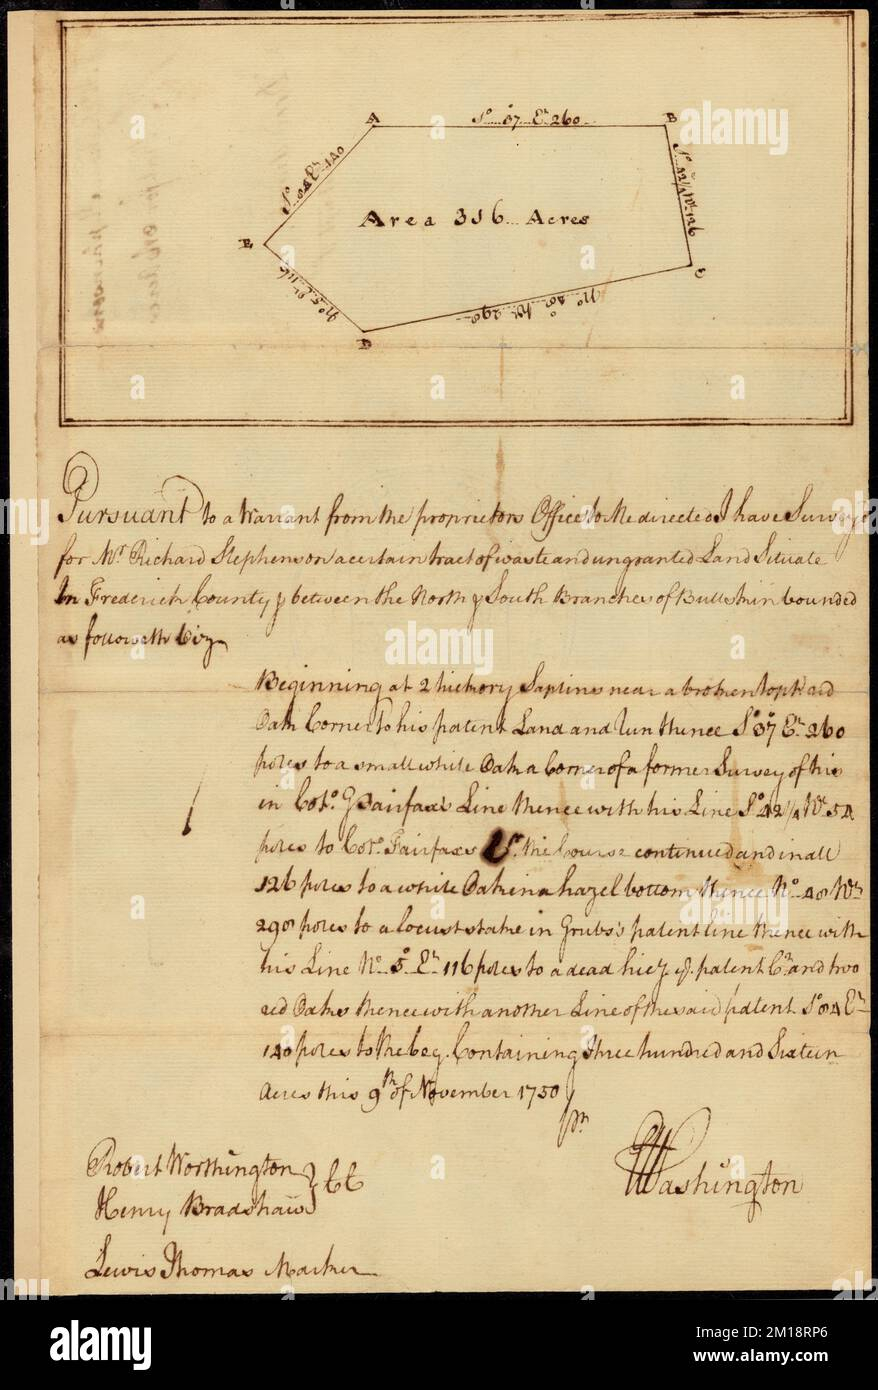 A
So 87 Er 260
B
So 84 Er 140
So 42 1/4 Wt 126
Area 316 Acres
E
C
No 5 Er 116
No 40 Wt 290
D
Pursuant to a Warrant from the proprietors Office to Me directed I have Survey'd
for Mr Richard Stephenson a certain tract of waste and ungranted Land Situate
In Frederick County & between the North & South Branches of Bullskin bounded
as followeth Viz
Beginning at 2 hickory Saplins near a broken topt red
Oak Corner to his patent Land and run thence So 87 Er 260
poles to a small white Oak a Corner of a former Survey of his
in Colo. G Fairfax's Line thence with his Line So 42 1/4 Wt 54
poles to Colo. Fairfaxs Cr. the Course continued and in all
126 poles to a white Oak in a hazel bottom thence No 40 Wt
290 poles to a locust stake in Grubs's patent line thence with
his Line No 5 Er 116 poles to a dead hicy patent Cr and two
red Oaks thence with another Line of the said patent So 84 Er
140 poles to the beg. Containing three hundred and Sixteen
Acres this 9th of November 1750
pr
Robert Worthington
Henry Bradshaw } CC
Washington
Lewis Thomas Marker
alamy
Image ID: 2M18RP6
www.alamy.com